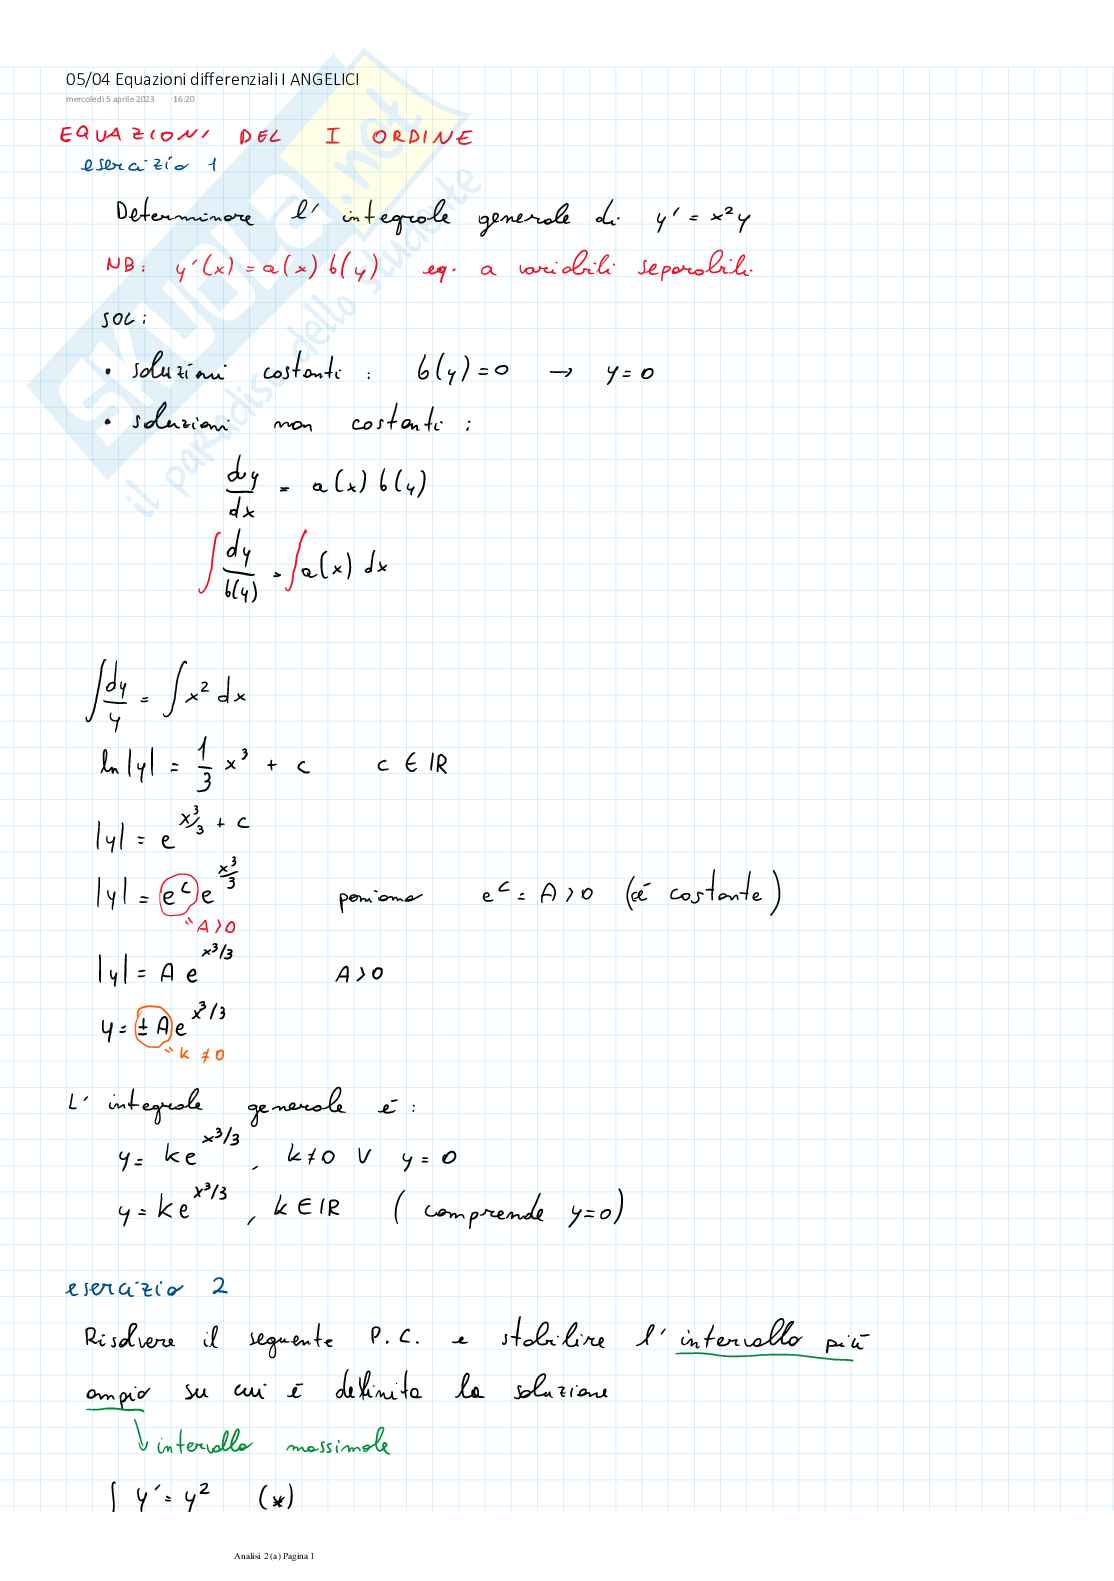 05/04 Equazioni differenziali I ANGELICI
mercoledì 5 aprile 2023 16:20
EQUAZIONI DEL I ORDINE
esercizio 1
Determinare l' integrale generale di y' = x²y
NB: y'(x) = a(x) b(y) eq. a variabili separabili
SOL:
• soluzioni costanti : b(y) = 0 → y = 0
• soluzioni non costanti :
dy/dx = a(x) b(y)
∫ dy/b(y) = ∫ a(x) dx
∫ dy/y = ∫ x² dx
ln|y| = 1/3 x³ + c c ∈ ℝ
|y| = e^(x³/3 + c)
|y| = e^c e^(x³/3) poniamo e^c = A > 0 (è costante)
" A > 0
|y| = A e^(x³/3) A > 0
y = ± A e^(x³/3)
" k ≠ 0
L' integrale generale è :
y = k e^(x³/3) , k ≠ 0 ∨ y = 0
y = k e^(x³/3) , k ∈ ℝ ( comprende y=0)
esercizio 2
Risolvere il seguente P.C. e stabilire l' intervallo più
ampio su cui è definita la soluzione
↳ intervallo massimale
{ y' = y² (*)
Analisi 2 (a) Pagina 1
SKUOLA.net
il paradiso dello studente